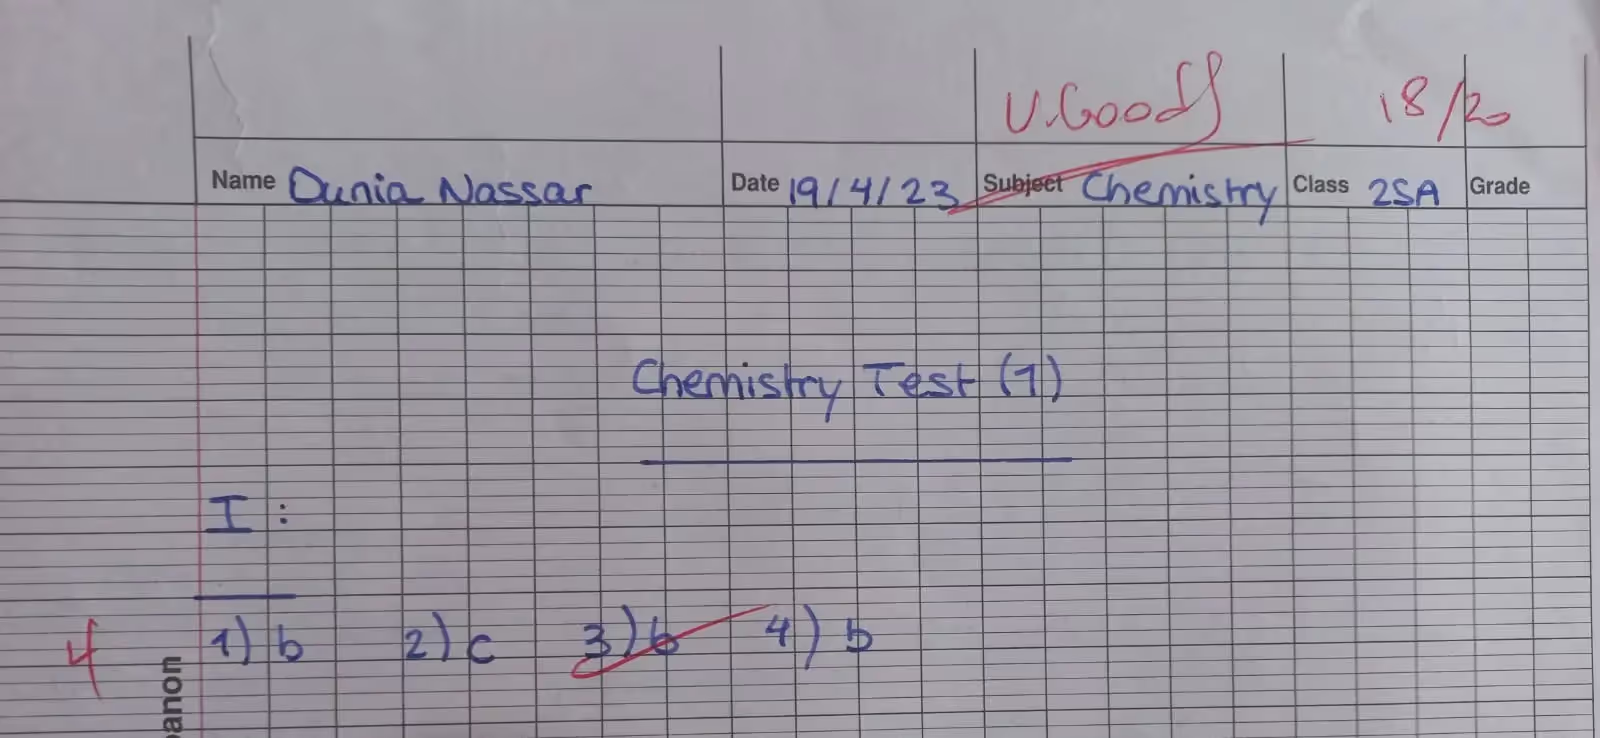 V.Good 18/20
Name Dunia Nassar Date 19/4/23 Subject Chemistry Class 2SA Grade
Chemistry Test (1)
I :
4 1) b 2) c 3) b 4) b
banon